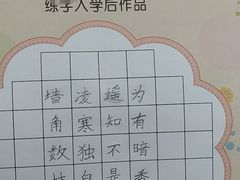 练字入学后作品
墙角数枝
凌寒独自
遥知不是
为有暗香